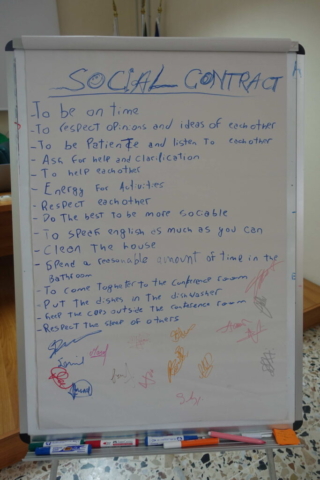 SOCIAL CONTRACT
To be on time
- To respect opinions and ideas of eachother
- To be Patiente and listen to eachother
- Ask for help and clarification
- To help eachother
- Energy for Activities
- Respect eachother
- Do the best to be more sociable
- To speek english as much as you can
- Clean the house
- Spend a reasonable amount of time in the
bathroom
- To come togheter to the conference room
- Put the dishes in the dishwasher
- Keep the cups outside the conference room
- Respect the sleep of others